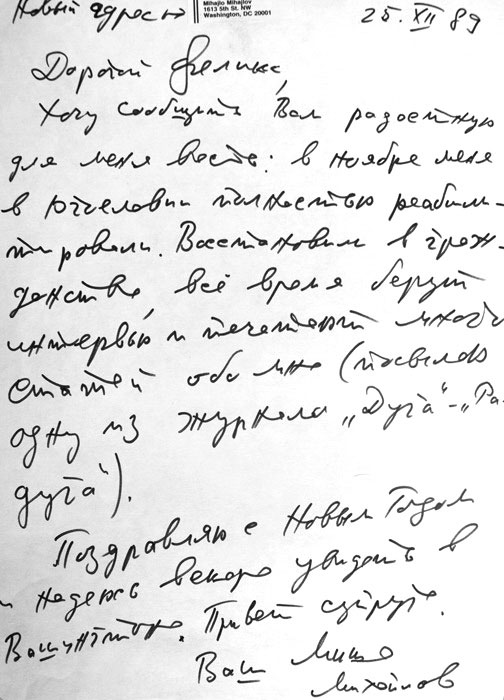 Новый адрес
Mihajlo Mihajlov
1613 5th St. NW
Washington, DC 20001
25. XII 89
Дорогой Феликс,
Хочу сообщить Вам радостную
для меня весть: в ноябре меня
в Югославии полностью реабили-
тировали. Восстановили в граж-
данстве, всё время берут
интервью и печатают много
статей обо мне (посылаю
одну из журнала „Дуга“-„Ра-
дуга“).
Поздравляю с Новым Годом
и надеюсь вскоре увидеть в
Вашингтоне. Привет супруге.
Ваш Миша
Михайлов